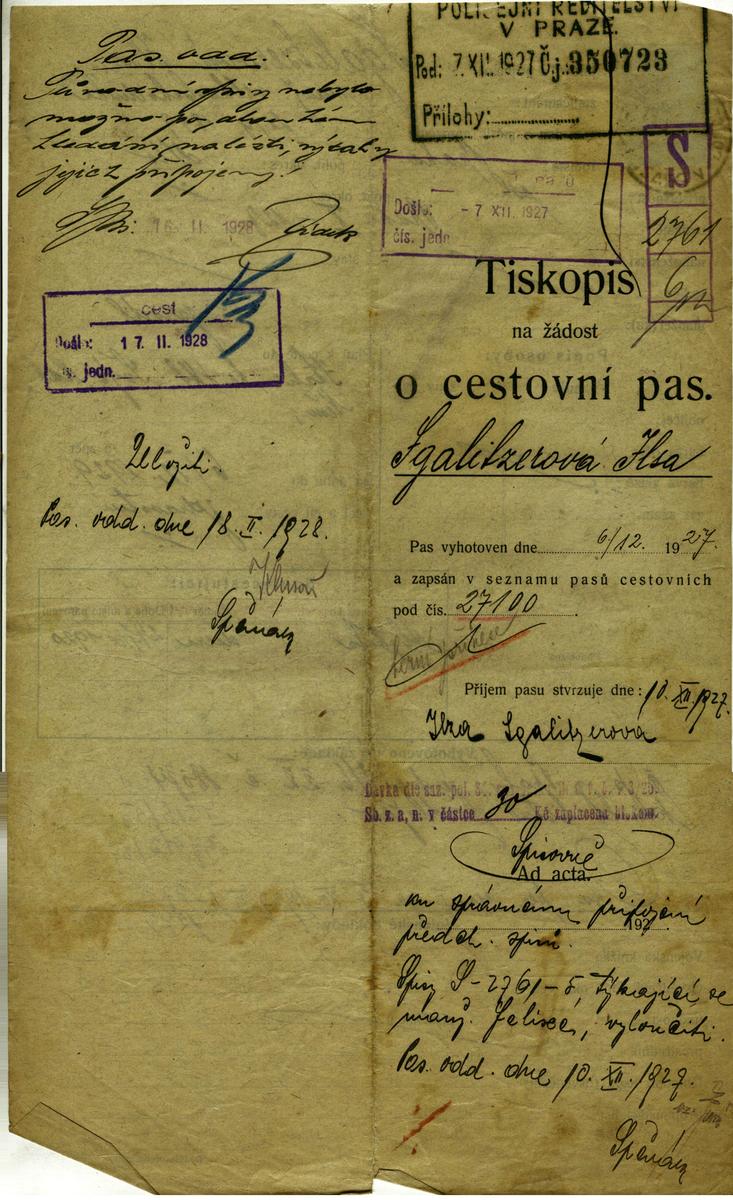 Pas. odd.
Původní spisy nebylo
možno po dlouhém
hledání nalézti, výtahy
jejich připojeny.
16 II. 1928
cest
Došlo: 17. II. 1928
čís. jedn.
Uložiti.
Pas. odd. dne 18. II. 1928.
POLICEJNÍ ŘEDITELSTVÍ
V PRAZE.
Pod: 7. XII. 1927 Čj. 350723
Přílohy:
Došlo: - 7 XII. 1927
čís. jedn.
S
2761
6
Tiskopis
na žádost
o cestovní pas.
Sgalitzerová Ilsa
Pas vyhotoven dne 6/12. 1927.
a zapsán v seznamu pasů cestovních
pod čís. 27100
Příjem pasu stvrzuje dne: 10. XII. 1927.
Ilsa Sgalitzerová
Dávka dle saz. pol.
Sb. z. a. n. v částce 30 Kč zaplacena blokem.
Spisovně
Ad acta.
ku správnému připojení
předch. spisů.
192
Spisy S-2761-5, týkající se
, vyloučiti.
Pas. odd. dne 10. XII. 1927.